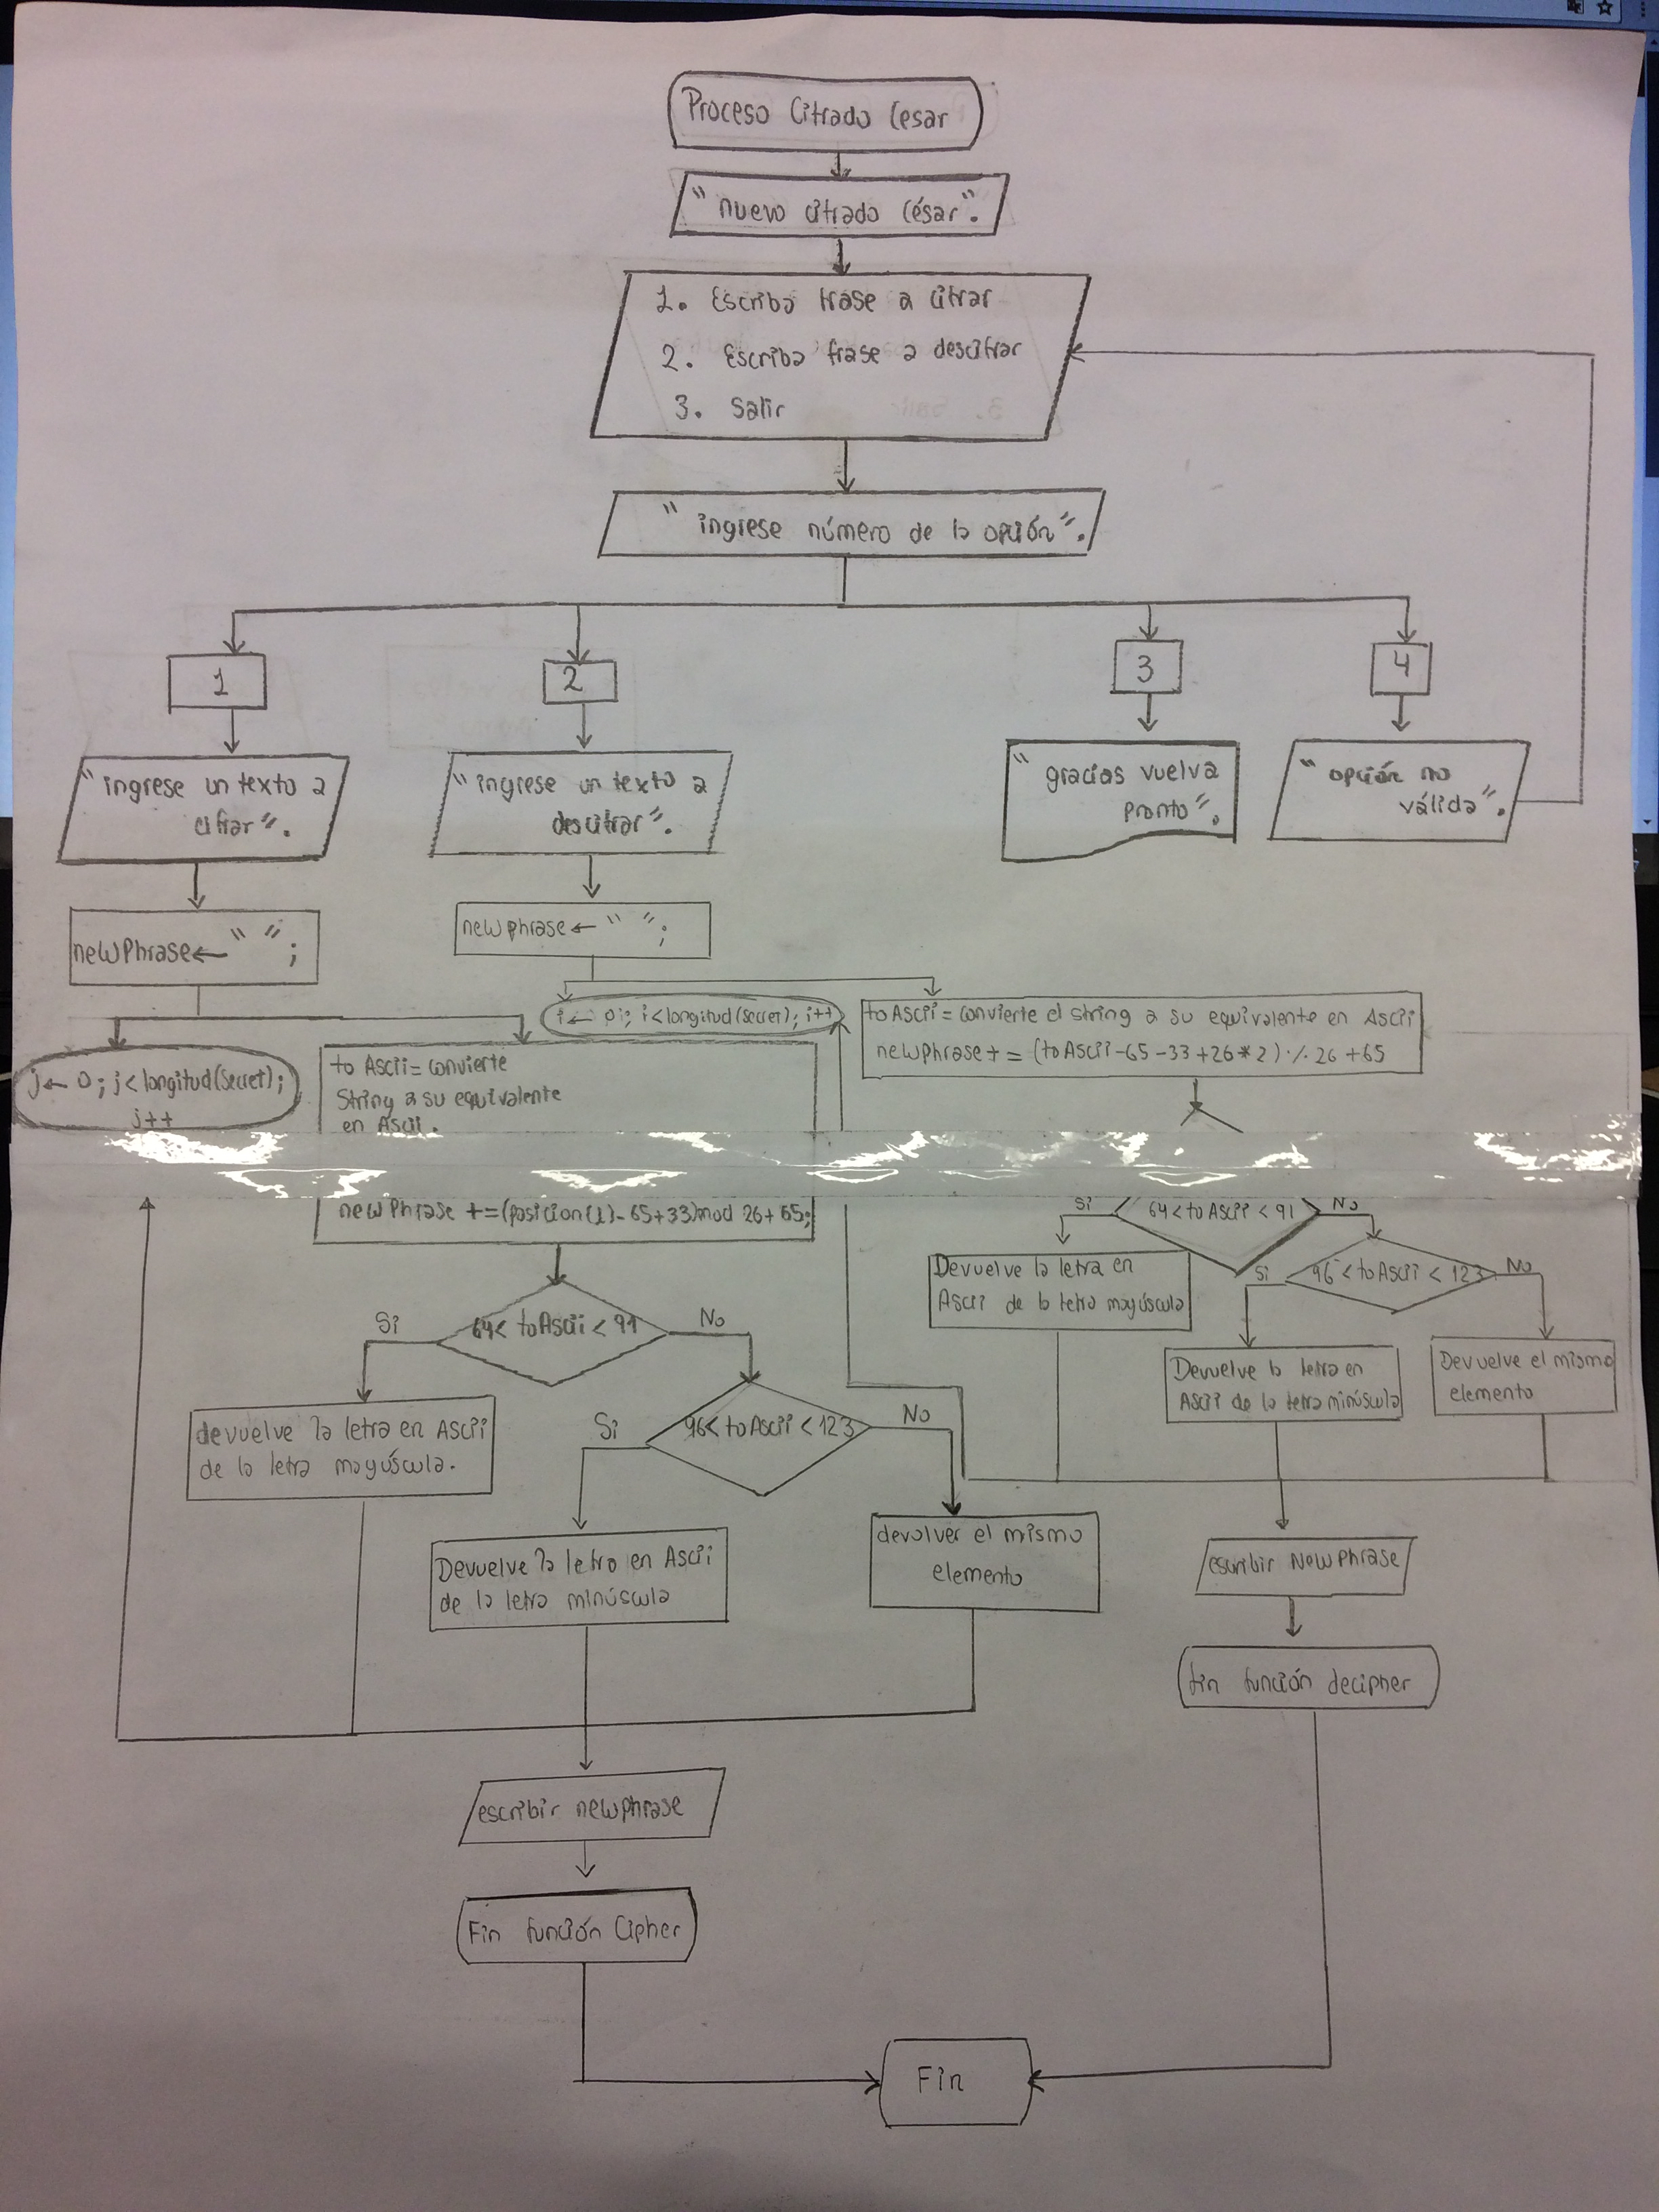 Proceso Cifrado Cesar
“nuevo cifrado César”.
1. Escriba frase a cifrar
2. Escriba frase a descifrar
3. Salir
“ingrese número de la opción”.
1
2
3
4
“ingrese un texto a
cifrar”.
“ingrese un texto a
descifrar”.
“gracias vuelva
pronto”.
“opción no
válida”.
newPhrase←“ ”;
newphrase←“ ”;
j← 0; j<longitud(Secret);
j++
to Ascii= convierte
String a su equivalente
en Ascii.
newPhrase +=(posicion(1)-65+33)mod 26+65;
i← 0; i<longitud(secret); i++
to Ascii= convierte el string a su equivalente en Ascii
newphrase+=(toAscii-65-33+26*2)%26+65
64<toAscii<91
Si
No
devuelve la letra en Ascii
de la letra mayúscula.
96<toAscii<123
Si
No
Devuelve la letra en Ascii
de la letra minúscula
devolver el mismo
elemento
escribir newphrase
Fin función Cipher
Si
64<toAscii<91
No
Devuelve la letra en
Ascii de la letra mayúscula
Si
96<toAscii<123
No
Devuelve la letra en
Ascii de la letra minúscula
Devuelve el mismo
elemento
escribir NewPhrase
fin función decipher
Fin